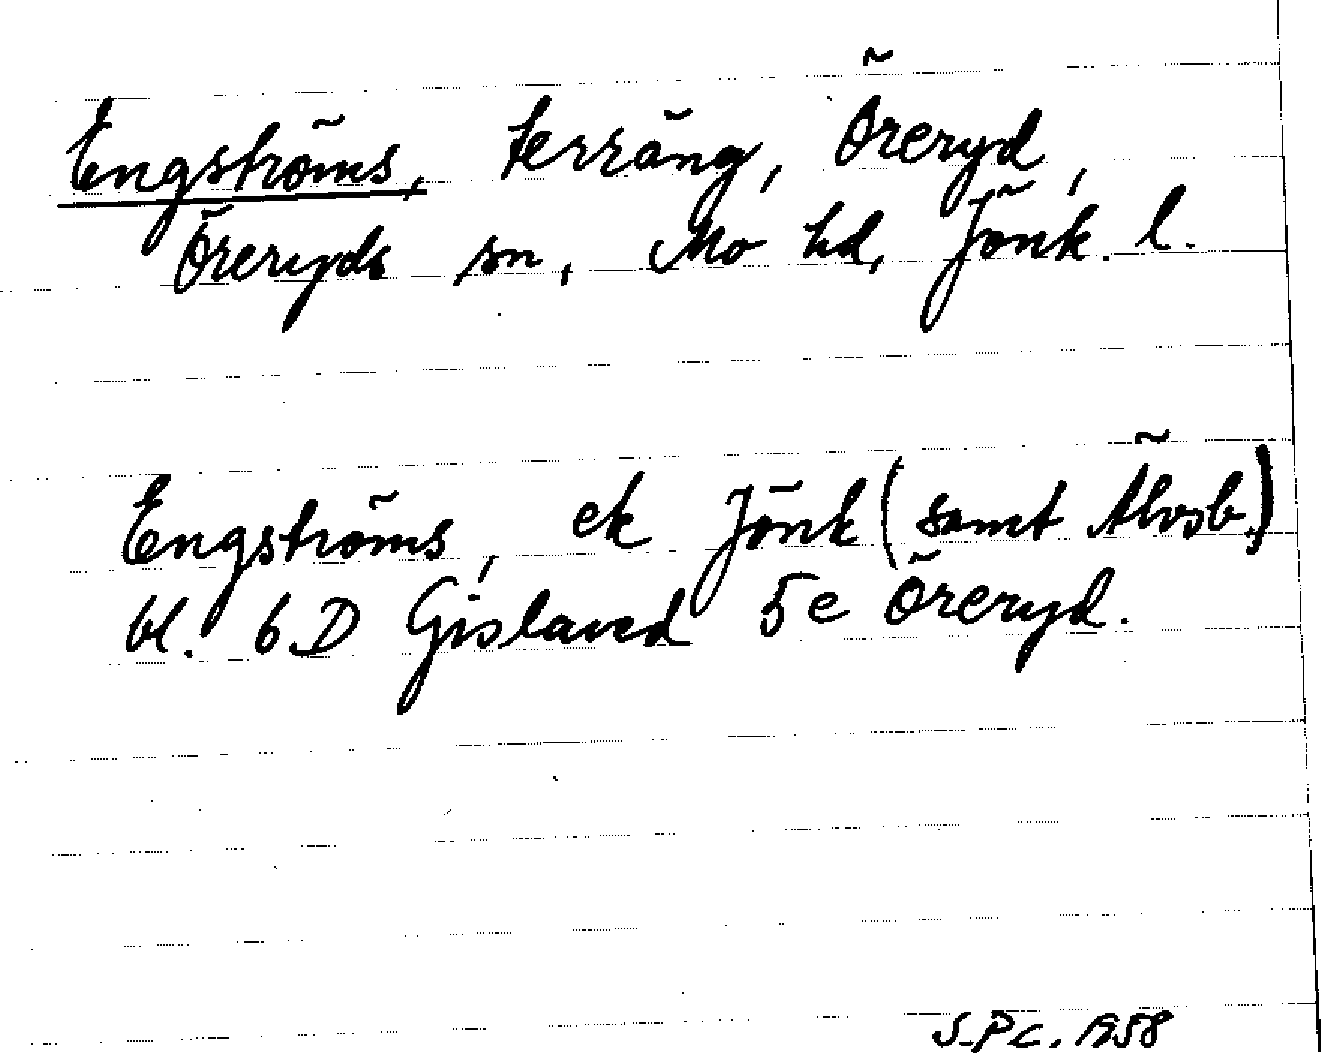 Engströms, terräng, Öreryd,
Öreryds sn, Mo hd, Jönk. l.
Engströms, ek Jönk (samt Älvsb.)
bl. 6D Gislaved 5e Öreryd.
S.P.C. 1958